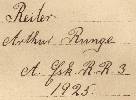 Reiter
Arthur Runge
A. Esk. R. R. 3
1925.